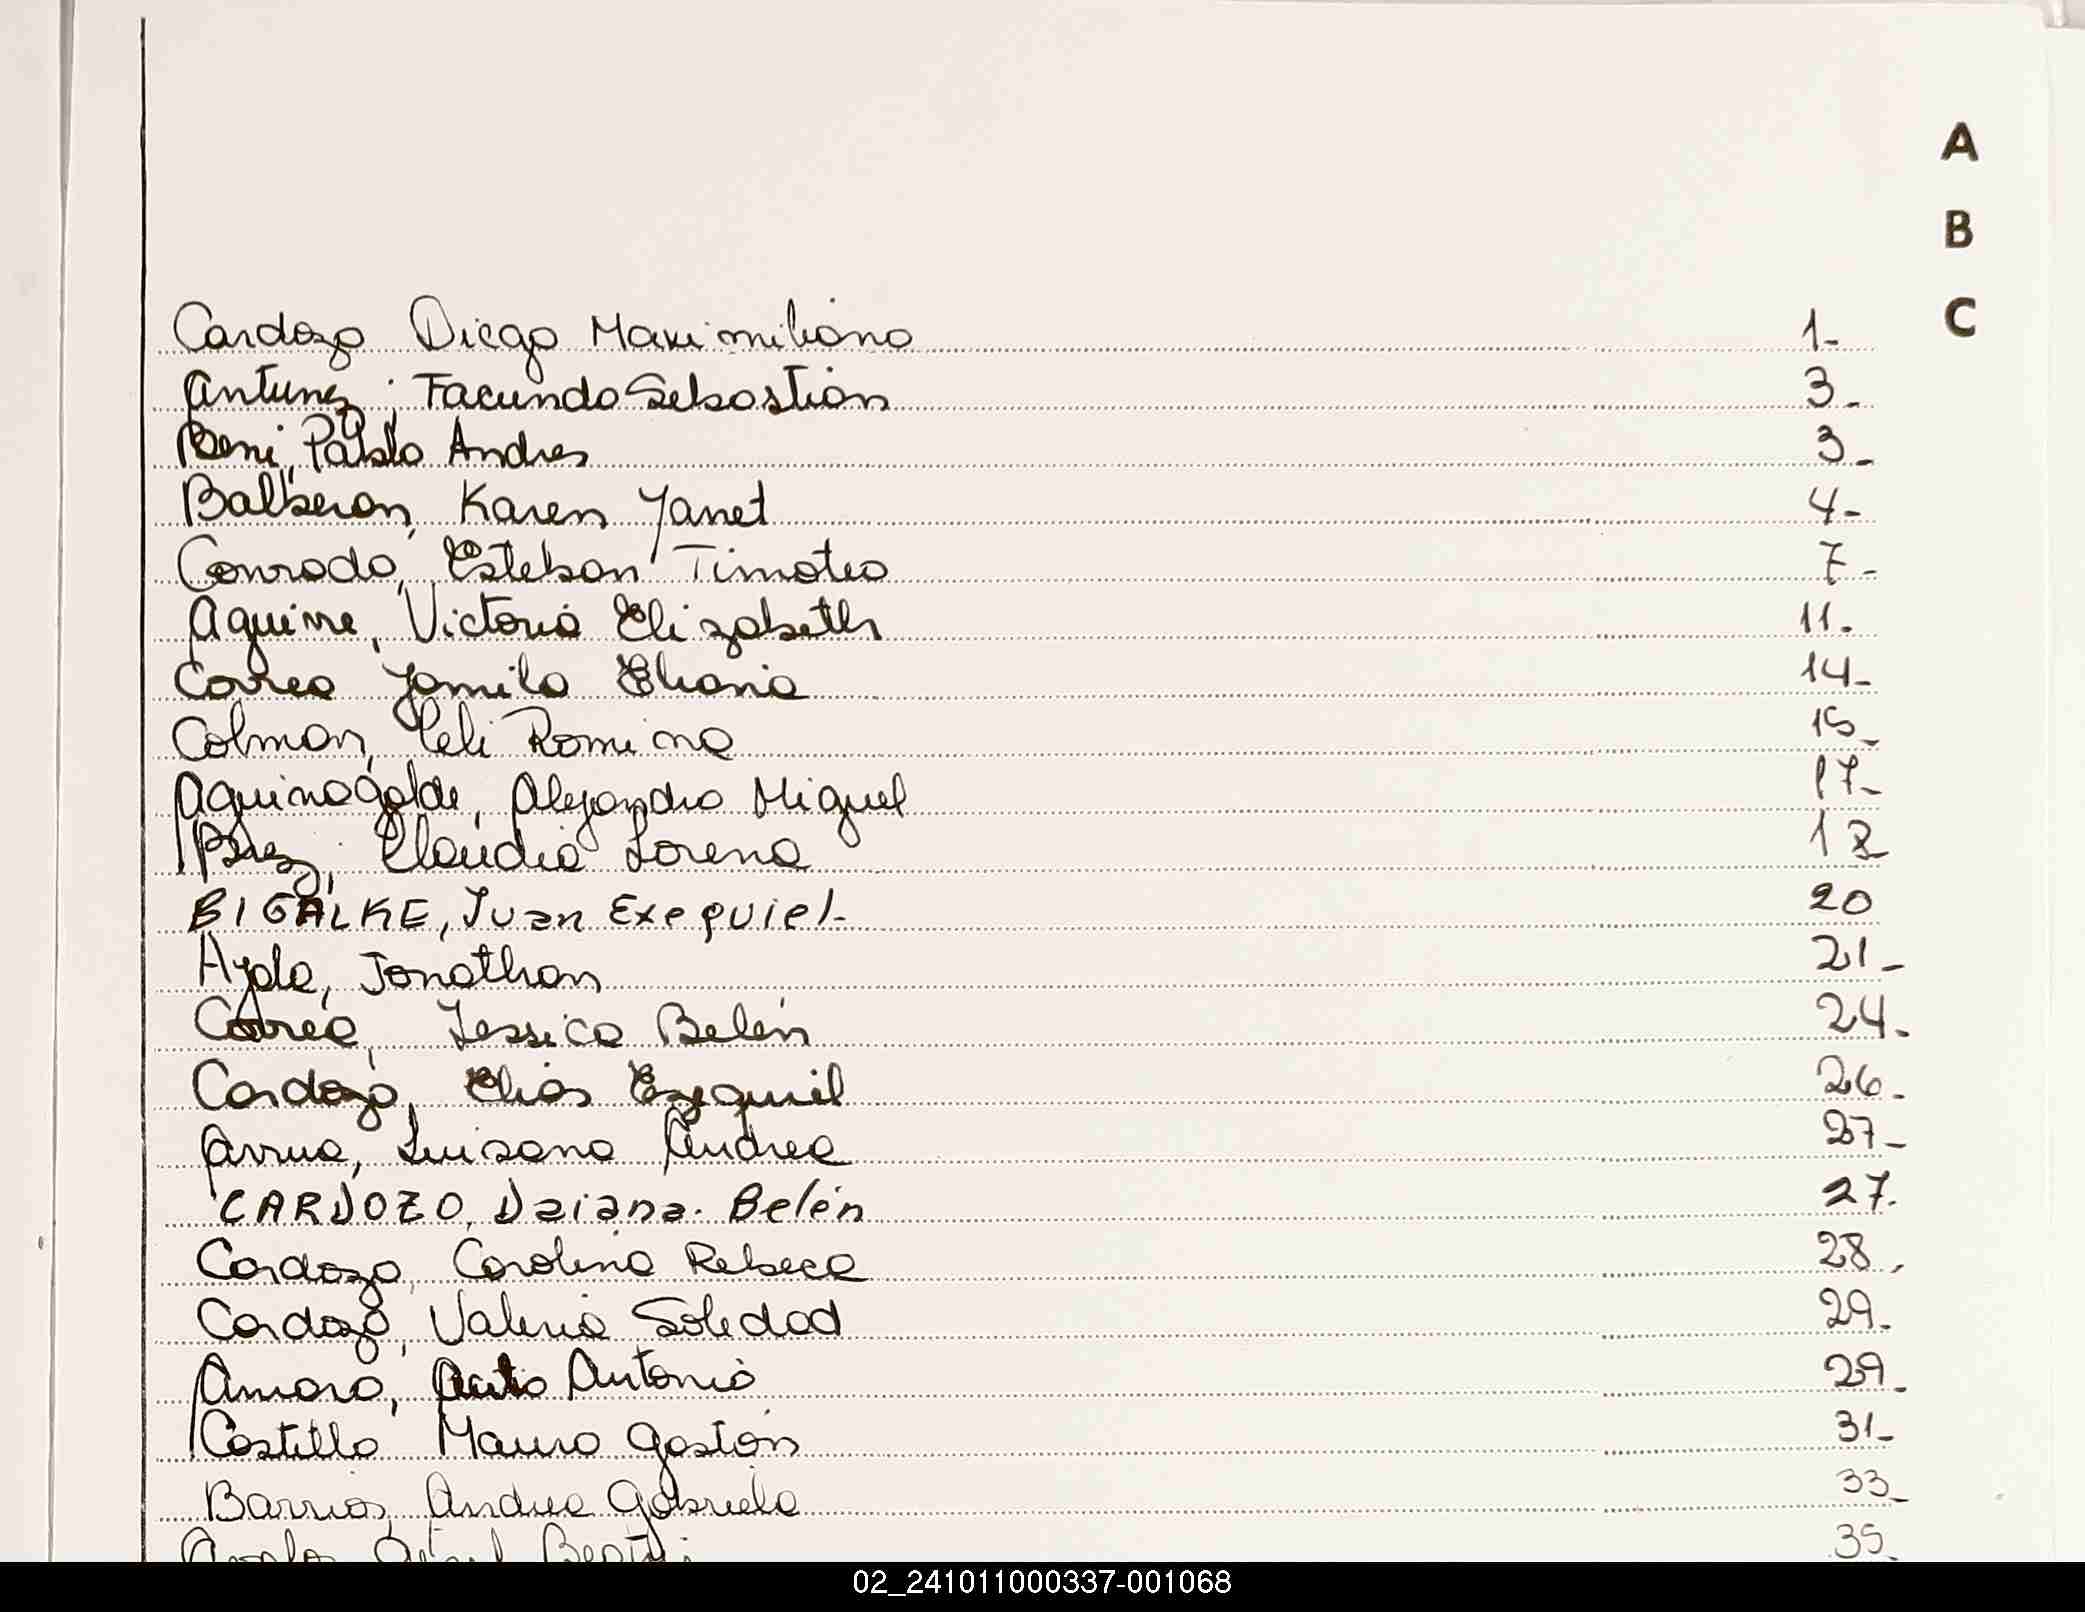 A
B
C
Cardozo Diego Maximiliano 1-
Antunez, Facundo Sebastián 3-
Beni, Pablo Andres 3-
Balberon, Karen Yanet 4-
Conrado, Esteban Timoteo 7-
Aguirre, Victoria Elizabeth 11.
Correa Yamila Eliana 14-
Colman, Romina 15-
Aquinagalde, Alejandro Miguel 17-
Baez, Claudia Lorena 18-
BIGALKE, Juan Exequiel- 20
Ayala, Jonathan 21-
Correa, Jessica Belén 24-
Cardozo, Elias Ezequiel 26-
Arrua, Luisana Andrea 27-
CARDOZO, Daiana. Belén 27.
Cardozo, Carolina Rebeca 28,
Cardozo, Valeria Soledad 29.
Amaro, Antonio 29-
Castillo Mauro Gastón 31-
Barrios, Andrea Gabriela 33-
35-
02_241011000337-001068